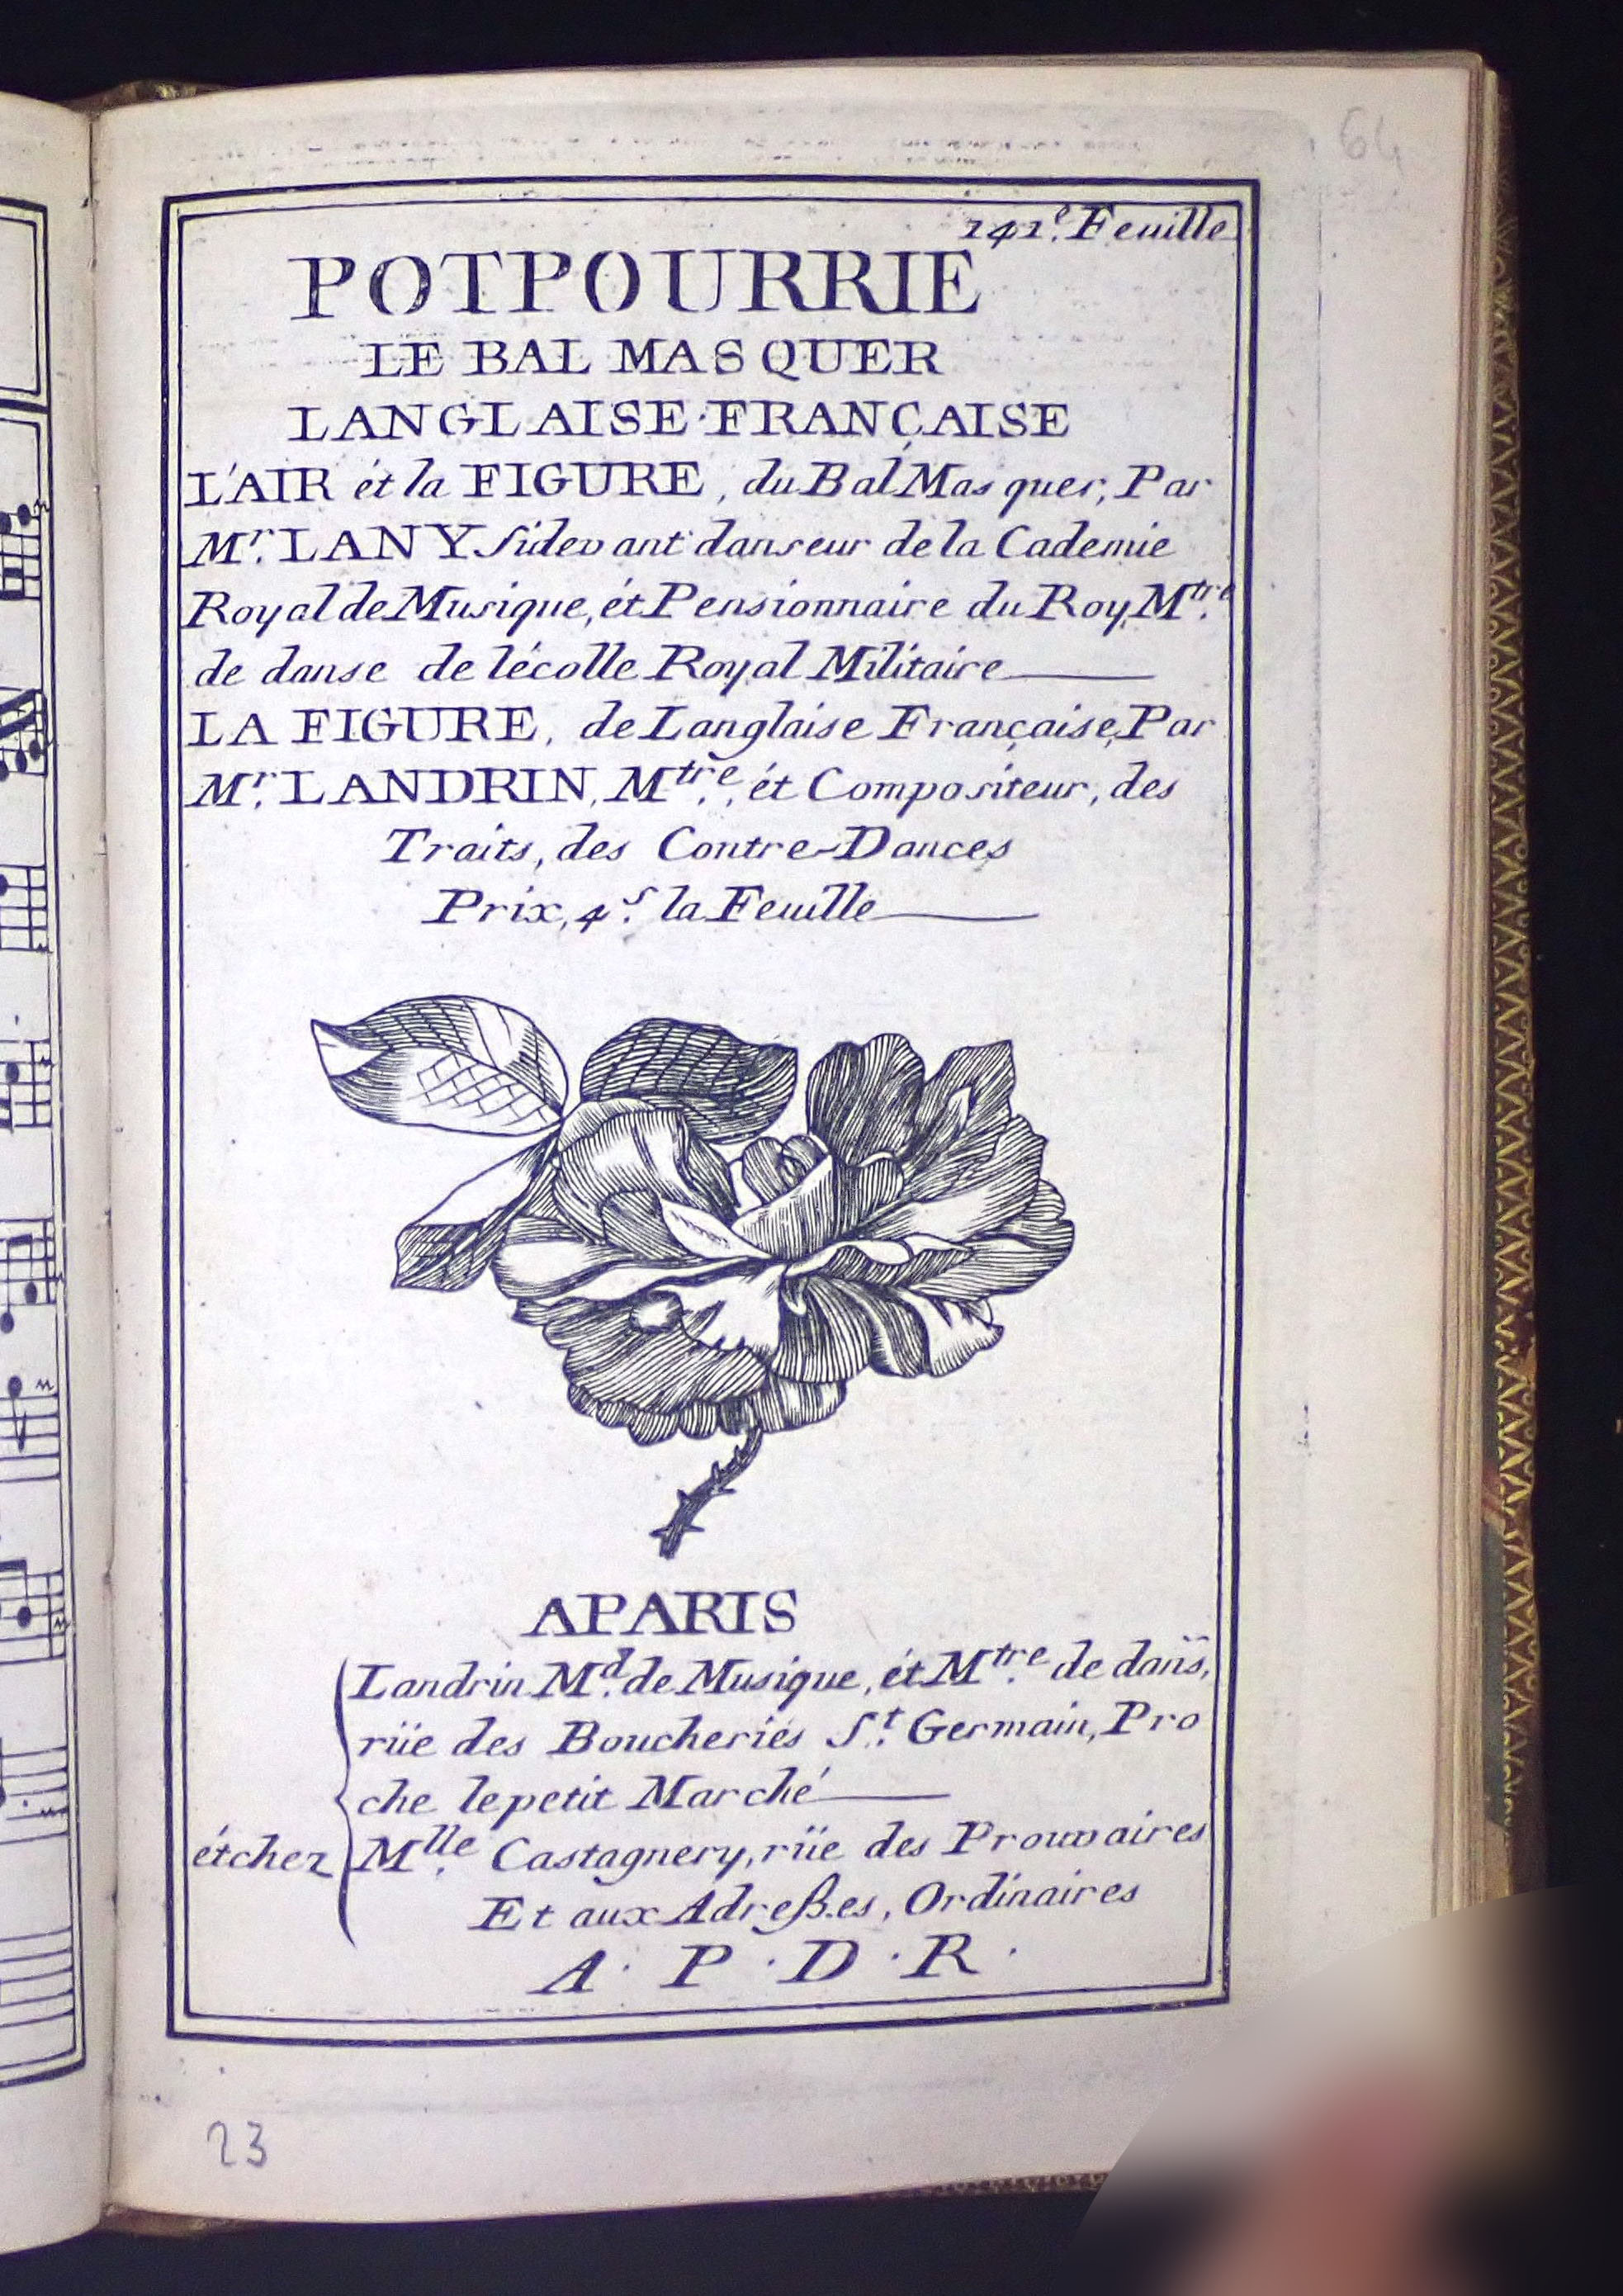 64
141.e Feuille
POTPOURRIE
LE BAL MASQUER
LANGLAISE·FRANÇAISE
L'AIR ét la FIGURE, du Bal Masquer, Par
Mr. LANY Sidevant danseur de la Cademie
Royal de Musique, ét Pensionnaire du Roy, Mtre.
de danse de lécolle Royal Militaire
LA FIGURE, de Langlaise Française, Par
Mr. LANDRIN, Mtre., ét Compositeur, des
Traits, des Contre-Dances
Prix, 4s. la Feuille
APARIS
Landrin Md. de Musique, ét Mtre. de dans,
rüe des Boucheriés St. Germain, Pro
che le petit Marché
étchez Mlle. Castagnery, rüe des Prouvaires
Et aux Adreßes, Ordinaires
A · P · D · R ·
23